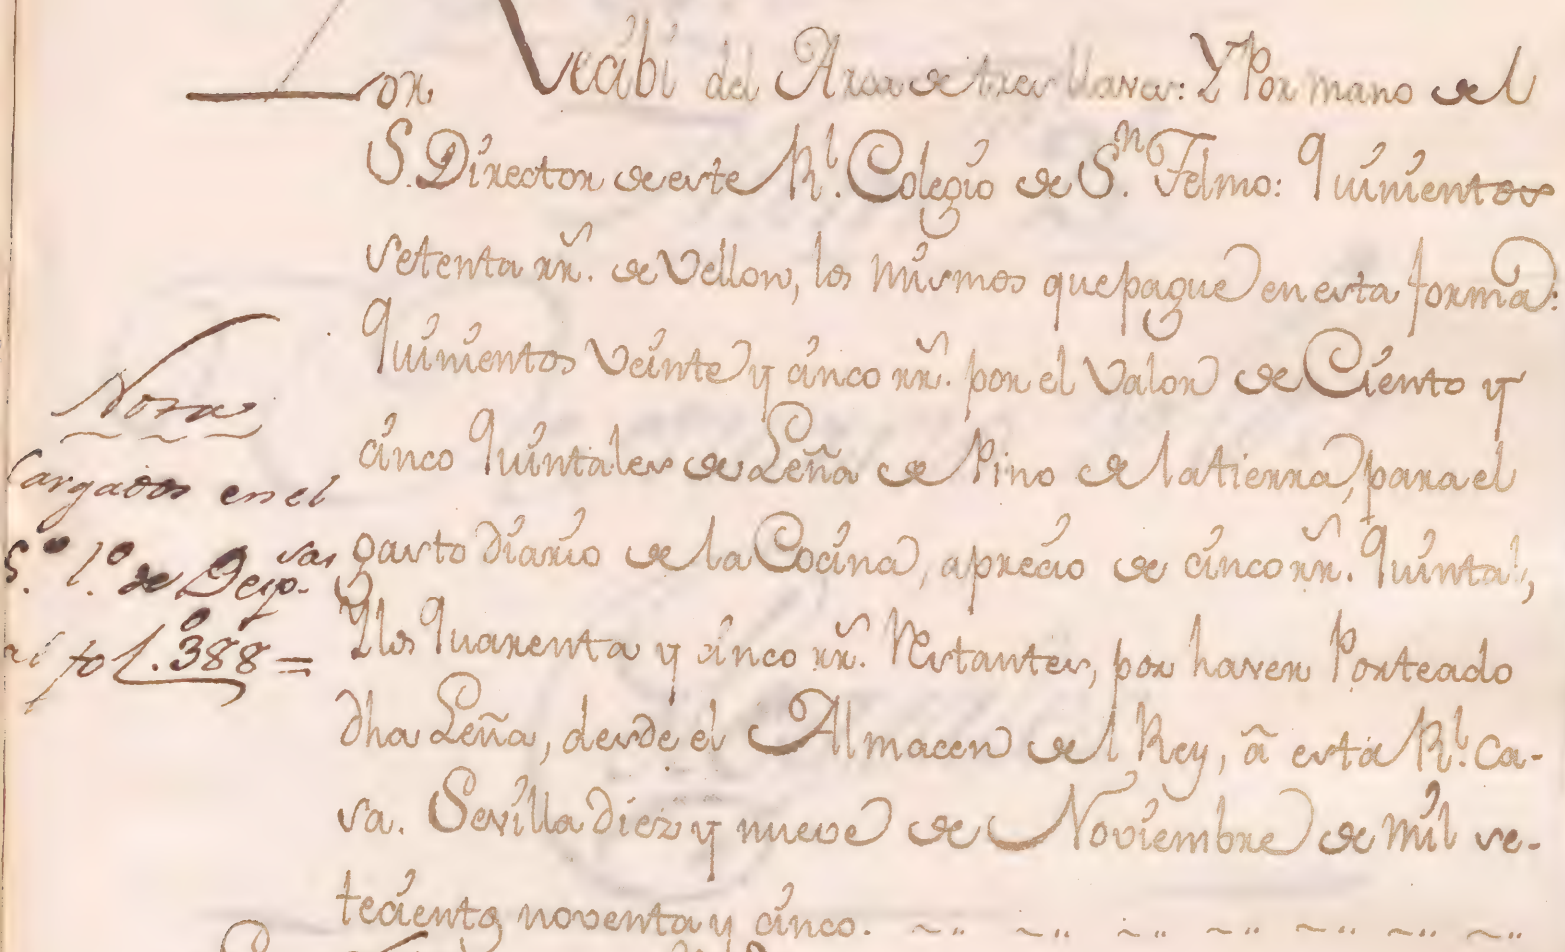 Recibi del Arca de tres llaves: Y Por mano del
S. Director de este Rl. Colegio de Sn. Telmo: Quinientos
setenta rr̃. de Vellon, los mismos que pague en esta forma:
Quinientos veinte y cinco rr̃. por el valor de Ciento y
cinco Quintales de Leña de Pino de la tierra, para el
gasto diario de la Cocina, a precio de cinco rr̃. Quintal,
Y los Quarenta y cinco rr̃. Restantes, por haver Porteado
dha Leña, desde el Almacen del Rey, â esta Rl. Ca-
sa. Sevilla diez y nueve de Noviembre de mil se-
tecientos noventa y cinco.
Nota
Cargados en el
l.º de
al fol. 388 =